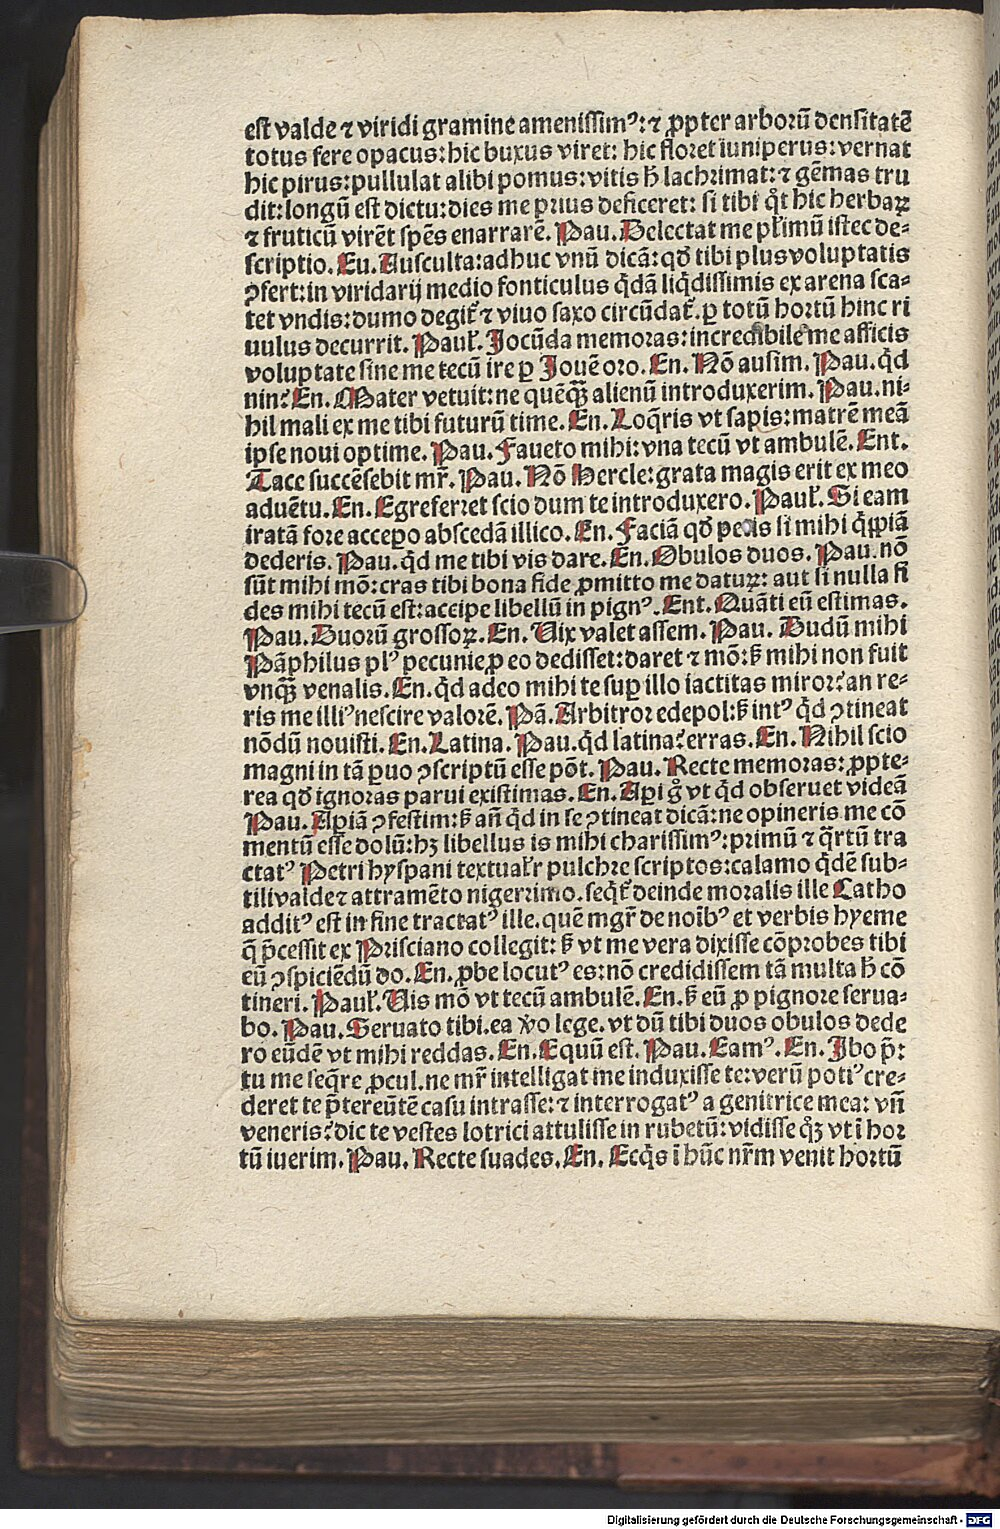 est valde ⁊ viridi gramine amenissimꝰ: ⁊ ꝓpter arborū densitatē
totus fere opacus: hic buxus viret: hic floret iuniperus: vernat
hic pirus: pullulat alibi pomus: vitis h̄ lachrimat: ⁊ gēmas tru
dit: longū est dictu: dies me prius deficeret: si tibi q̊t hic herbaꝝ
⁊ fruticū virēt spēs enarrarē. Pau. Delectat me plimū istec de-
scriptio. En. Ausculta: adhuc vnū dicā: qđ tibi plus voluptatis
ꝯfert: in viridarij medio fonticulus q̄dā liq̄dissimis ex arena sca-
tet vndis: dumo degit᷑ ⁊ viuo saxo circūdat᷑. ꝑ totū hortū hinc ri
uulus decurrit. Paul᷑. Jocūda memoras: incredibile me afficis
voluptate sine me tecū ire ꝑ Jouē oro. En. Nō ausim. Pau. q̄d
nin? En. Mater vetuit: ne quēq̄ȝ alienū introduxerim. Pau. ni-
hil mali ex me tibi futurū time. En. Loq̄ris vt sapis: matrē meā
ipse noui optime. Pau. Faueto mihi: vna tecū vt ambulē. Ent.
Tace succēsebit mr̄. Pau. Nō Hercle: grata magis erit ex meo
aduētu. En. Egreferret scio dum te introduxero. Paul᷑. Si eam
iratā fore accepo abscedā illico. En. Faciā qđ petis si mihi q̄ppiā
dederis. Pau. q̄d me tibi vis dare. En. Obulos duos. Pau. nō
sūt mihi mō: cras tibi bona fide ꝓmitto me datuꝝ: aut si nulla fi
des mihi tecū est: accipe libellū in pignꝰ. Ent. Quāti eū estimas.
Pau. Duorū grossoꝝ. En. Vix valet assem. Pau. Dudū mihi
Pāphilus plꝰ pecunie ꝓ eo dedisset: daret ⁊ mō: ß mihi non fuit
vnq̄ȝ venalis. En. q̄d adeo mihi te suꝑ illo iactitas miror? an re-
ris me illiꝰ nescire valorē. Pā. Arbitror edepol: ß intꝰ q̄d ꝯtineat
nōdū nouisti. En. Latina. Pau. q̄d latina? erras. En. Nihil scio
magni in tā ꝑuo ꝯscriptū esse pōt. Pau. Recte memoras: ꝓpte-
rea qđ ignoras parui existimas. En. Aꝑi g̊ vt q̄d obseruet videā
Pau. Aꝑiā ꝯfestim: ß an̄ q̄d in se ꝯtineat dicā: ne opineris me cō
mentū esse dolū: hȝ libellus is mihi charissimꝰ: primū ⁊ q̄rtū tra
ctatꝰ Petri hyspani textual᷑r pulchre scriptos: calamo q̄dē sub-
tili valde ⁊ attramēto nigerrimo. seq̄t᷑ deinde moralis ille Catho
additꝰ est in fine tractatꝰ ille. quē mgr̄ de noībꝰ et verbis hyeme
q̄ p̄cessit ex Prisciano collegit: ß vt me vera dixisse cōprobes tibi
eū ꝯspiciēdū do. En. ꝓbe locutꝰ es: nō credidissem tā multa h̄ cō
tineri. Paul᷑. Vis mō vt tecū ambulē. En. ß eū ꝓ pignore serua-
bo. Pau. Seruato tibi. ea v̊o lege. vt dū tibi duos obulos dede
ro eūdē vt mihi reddas. En. Equū est. Pau. Eamꝰ. En. Ibo p̄:
tu me seq̄re ꝓcul. ne mr̄ intelligat me induxisse te: verū potiꝰ cre-
deret te p̄tereūtē casu intrasse: ⁊ interrogatꝰ a genitrice mea: vn̄
veneris? dic te vestes lotrici attulisse in rubetū: vidisse q̊ȝ vt ī hor
tū iuerim. Pau. Recte suades. En. Ecq̄s ī hūc nr̄m venit hortū
Digitalisierung gefördert durch die Deutsche Forschungsgemeinschaft - DFG